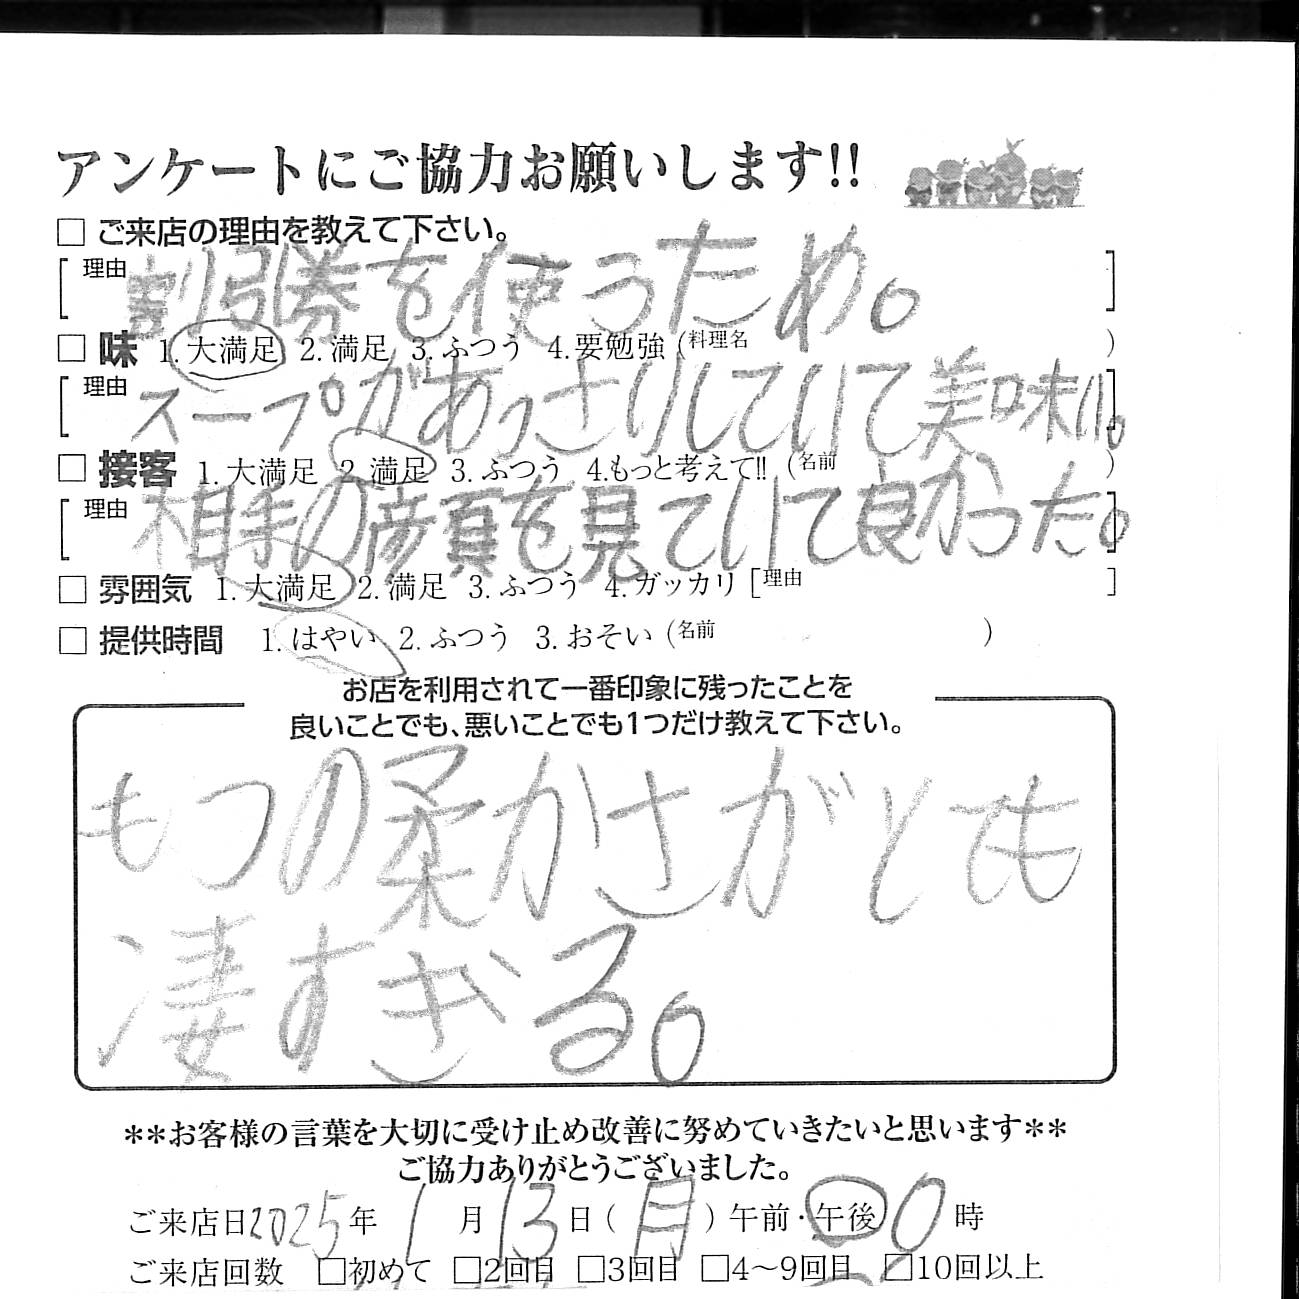 アンケートにご協力お願いします!!
□ ご来店の理由を教えて下さい。
[理由 割引券を使うため。]
□ 味 1.大満足 2.満足 3.ふつう 4.要勉強(料理名 )
[理由 スープがあっさりしていて美味しい。]
□ 接客 1.大満足 2.満足 3.ふつう 4.もっと考えて!!(名前 )
[理由 相手の顔を見ていて良かった。]
□ 雰囲気 1.大満足 2.満足 3.ふつう 4.ガッカリ[理由 ]
□ 提供時間 1.はやい 2.ふつう 3.おそい(名前 )
お店を利用されて一番印象に残ったことを
良いことでも、悪いことでも1つだけ教えて下さい。
もつの柔かさがとても
凄すぎる。
**お客様の言葉を大切に受け止め改善に努めていきたいと思います**
ご協力ありがとうございました。
ご来店日2025年 1月13日(月)午前・午後 0時
ご来店回数 □初めて □2回目 □3回目 □4～9回目 □10回以上